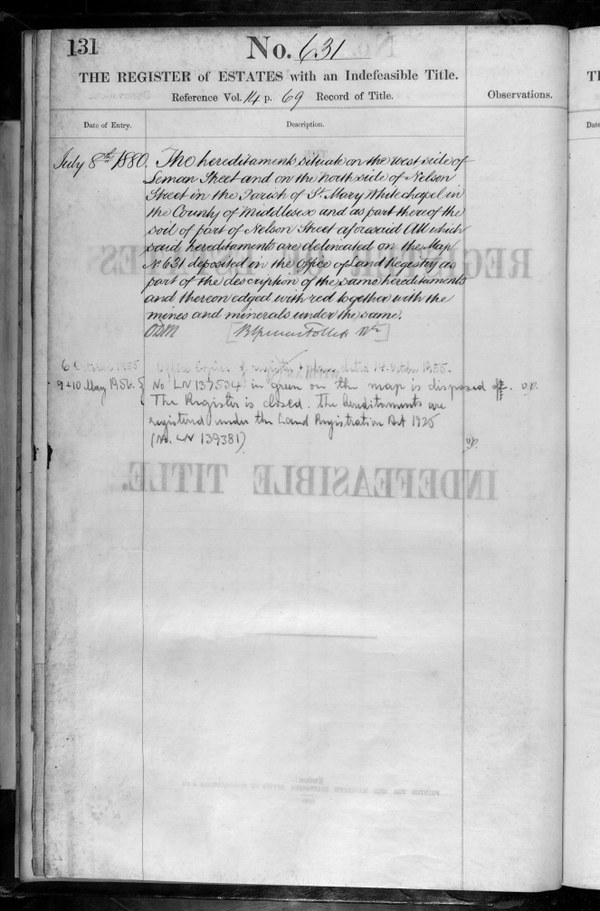 131
No. 631
THE REGISTER of ESTATES with an Indefeasible Title.
Reference Vol. 14 p. 69 Record of Title.
Observations.
Date of Entry.
Description.
July 8th 1880. The hereditaments situate on the West side of
Leman Street and on the North side of Nelson
Street in the Parish of St. Mary Whitechapel in
the County of Middlesex and as part thereof the
soil of part of Nelson Street aforesaid All which
said hereditaments are delineated on the Map
No 631 deposited in the Office of Land Registry as
part of the description of the same hereditaments
and thereon edged with red together with the
mines and minerals under the same.
Office Copies of register & plan dated 14 October 1955.
9 & 10 May 1956. No LN 137534 in green on the map is disposed of.
The Register is closed. The hereditaments are
registered under the Land Registration Act 1925
(No. LN 139381)
REGISTER
INDEFEASIBLE TITLE.